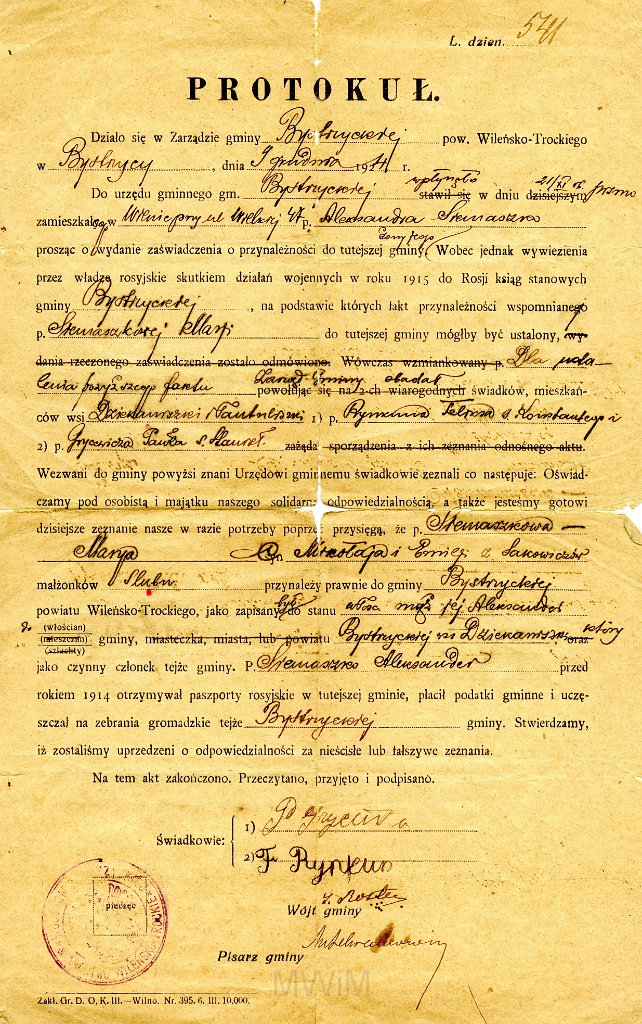 L. dzien. 541
PROTOKUŁ.
Działo się w Zarządzie gminy Bystrzyckiej pow. Wileńsko-Trockiego
w Bystrzycy, dnia 9 grudnia 1921 r.
Do urzędu gminnego gm. Bystrzyckiej wpłynęło stawił się w dniu dzisiejszym pismo
zamieszkałego w Wilnie przy ul Wielkiej 47 p. Aleksandra Siemaszko
prosząc o wydanie zaświadczenia o przynależności do tutejszej gminy żony jego. Wobec jednak wywiezienia
przez władze rosyjskie skutkiem działań wojennych w roku 1915 do Rosji ksiąg stanowych
gminy Bystrzyckiej, na podstawie których fakt przynależności wspomnianego
p. Siemaszkowej Marji do tutejszej gminy mógłby być ustalony, wy-
dania rzeczonego zaświadczenia zostało odmówiono. Wówczas wzmiankowany p. Dla usta
lenia powyższego faktu Zarząd Gminy zbadał powołując się na 2-ch wiarogodnych świadków, mieszkań-
ców wsi 1) p. Rymkuna Feliksa s. Konstantego i
2) p. Grycewicza Pawła s. zażąda sporządzenia z ich zeznania odnośnego aktu.
Wezwani do gminy powyżsi znani Urzędowi gminnemu świadkowie zeznali co następuje: Oświad-
czamy pod osobistą i majątku naszego solidarną odpowiedzialnością, a także jesteśmy gotowi
dzisiejsze zeznanie nasze w razie potrzeby poprzeć przysięgą, że p. Siemaszkowa
Marja Mikołaja i z Sakowiczów
małżonków ślubn. przynależy prawnie do gminy Bystryckiej
powiatu Wileńsko-Trockiego, jako zapisany do stanu mąż jej Aleksander
(włościan)
(mieszczan)
(szlachty)
gminy, miasteczka, miasta, lub powiatu Bystrzyckiej oraz który
jako czynny członek tejże gminy. P Siemaszko Aleksander przed
rokiem 1914 otrzymywał paszporty rosyjskie w tutejszej gminie, płacił podatki gminne i uczę-
szczał na zebrania gromadzkie tejże Bystrzyckiej gminy. Stwierdzamy,
iż zostaliśmy uprzedzeni o odpowiedzialności za nieścisłe lub fałszywe zeznania.
Na tem akt zakończono. Przeczytano, przyjęto i podpisano.
Świadkowie:
1)
2) F. Rymkun
pieczęć
Wójt gminy
Pisarz gminy
MWiM
Zakł. Gr. D. O. K. III.—Wilno. Nr. 395. 6. III. 10,000.